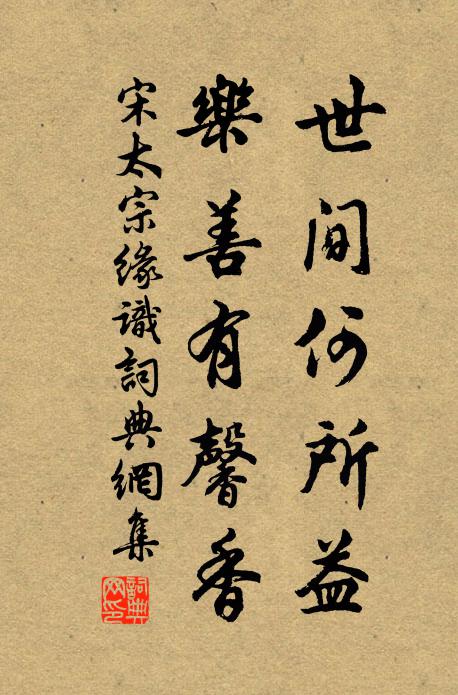 世間何所益
樂善有馨香
宋太宗緣識詞典網集
詞典網印